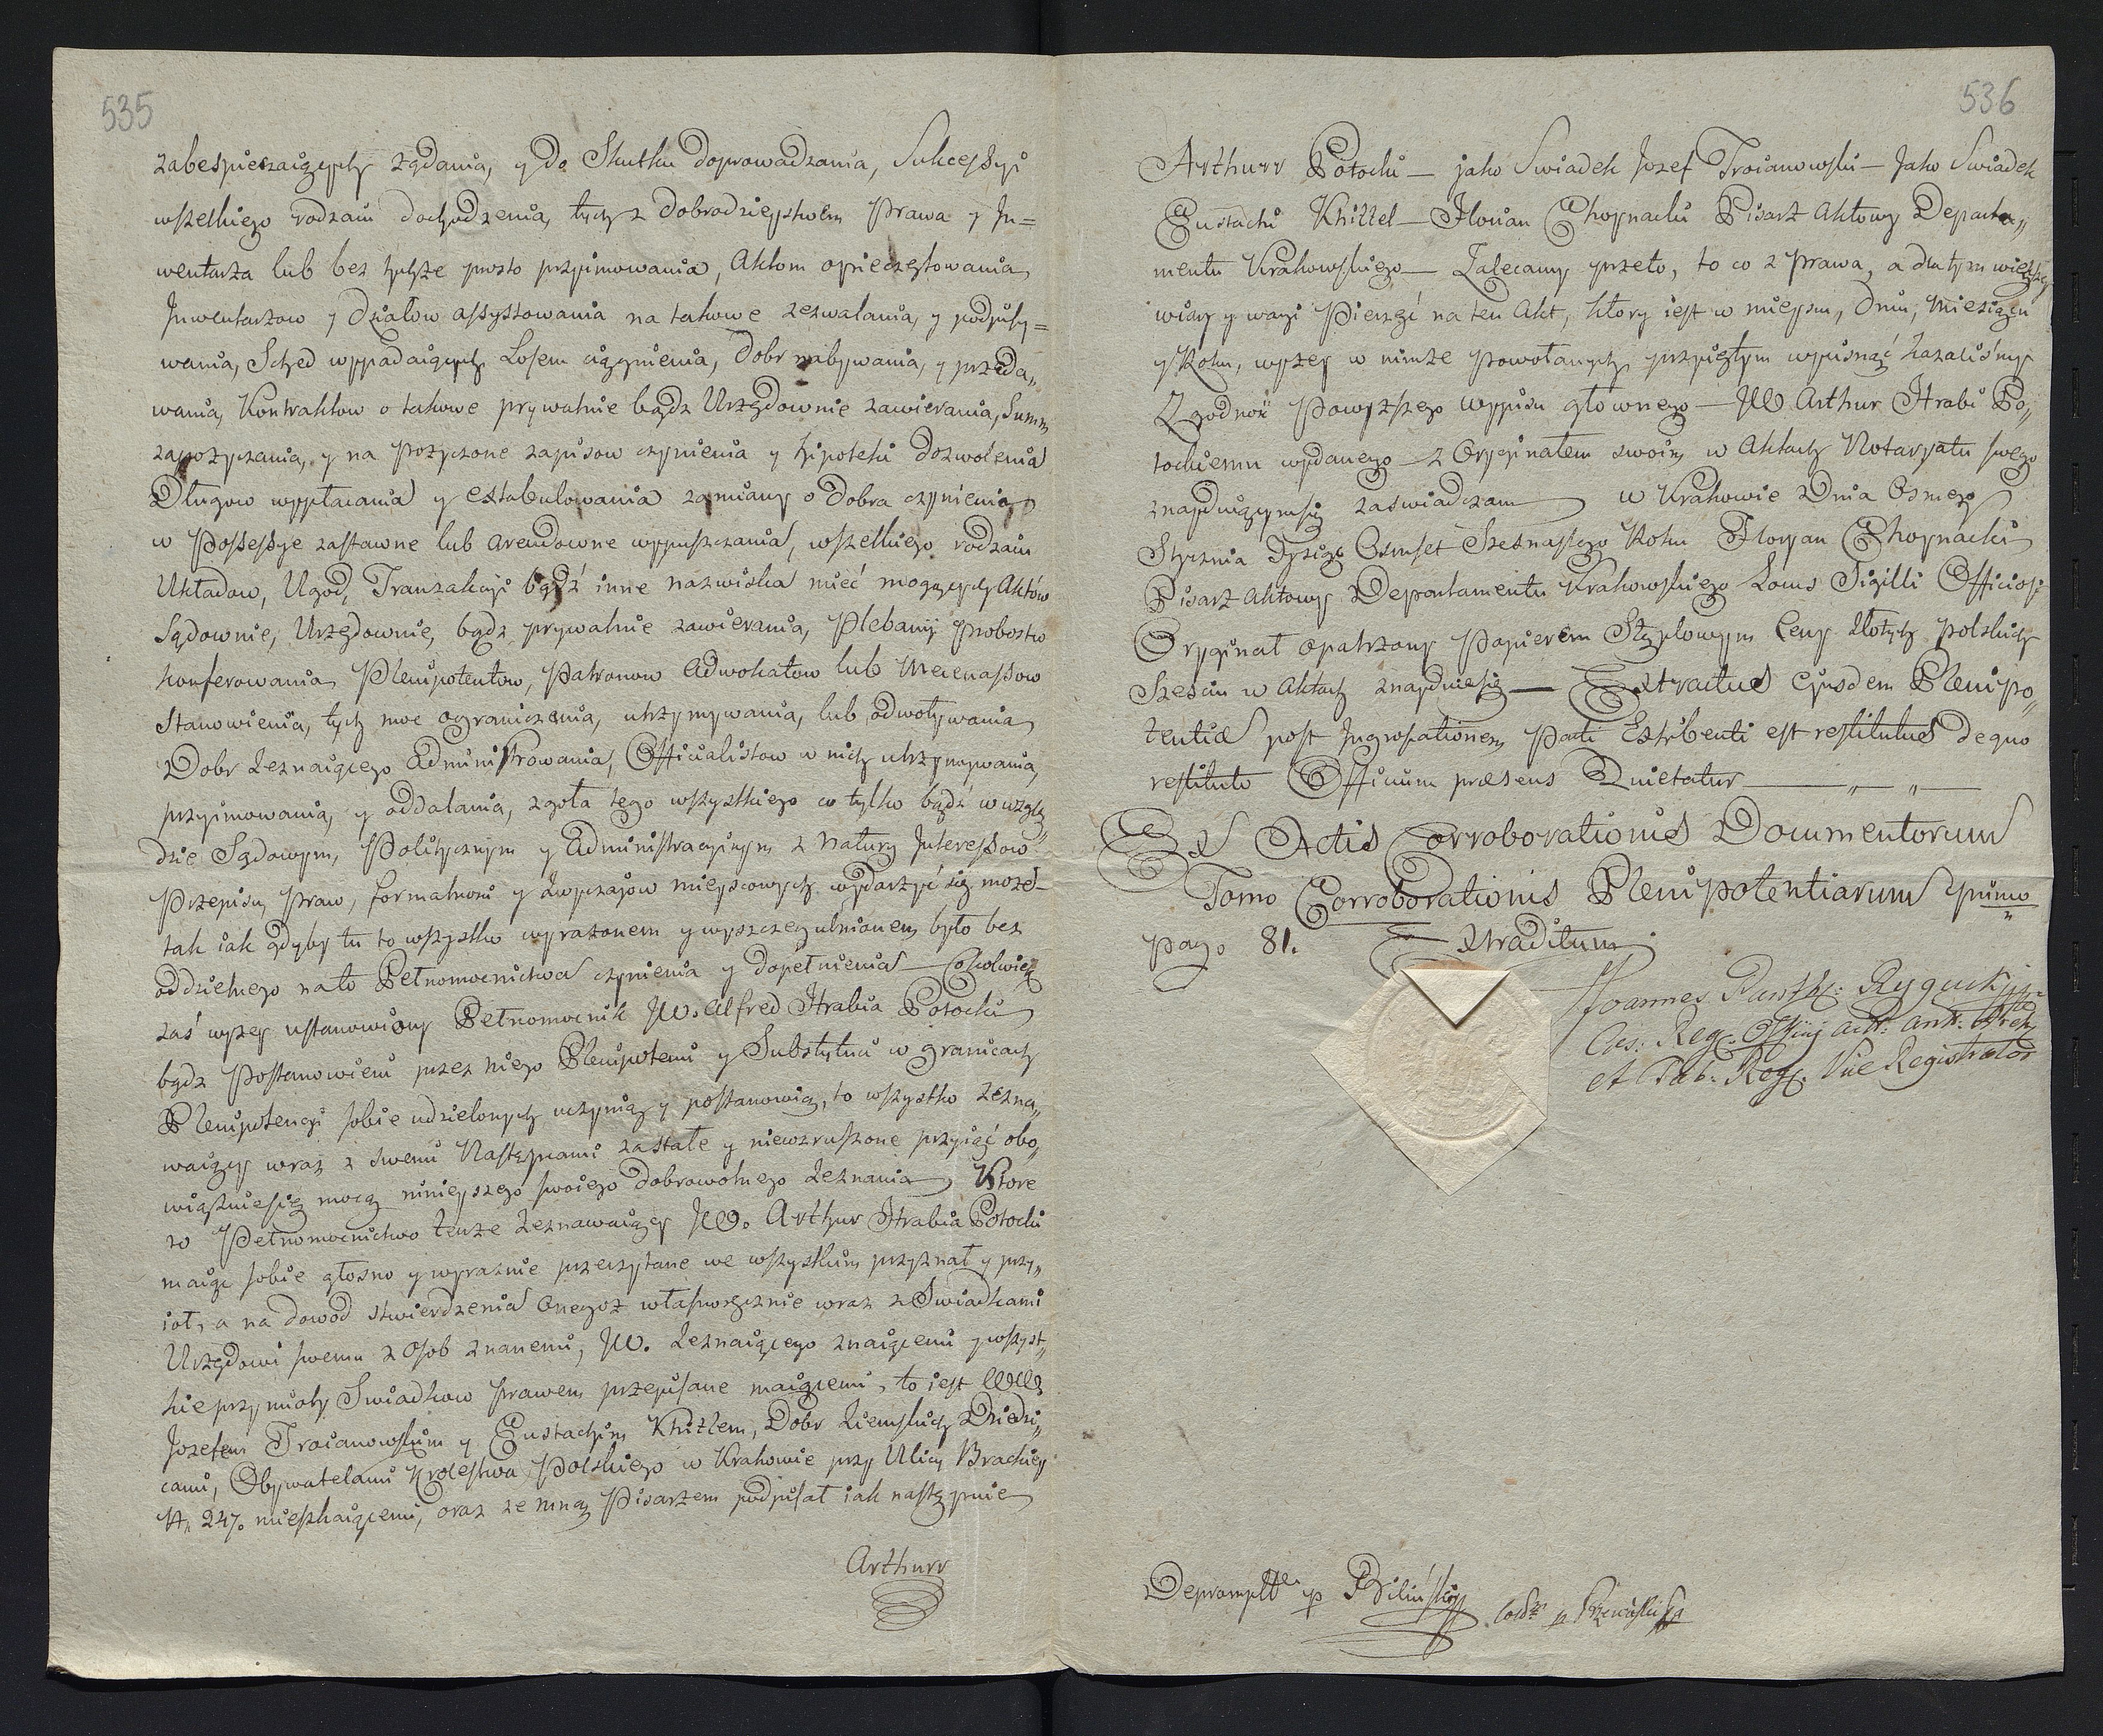 535
zabespieczaiących żądania, y do Skutku doprowadzania, Sukcessyi
wszelkiego rodzaiu dochodzenia, tych z Dobrodzieystwem Prawa y In=
wentarza lub bez tychże prosto przyimowania, Aktom opieczętowania,
Inwentarzow y Działow assystowania na takowe zezwalania, y podpisy=
wania, Sched wypadaiących Losem ciągnienia, Dobr nabywania, y przeda„
wania, Kontraktow o takowe prywatnie bądz Urzędownie zawierania, Summ
zapożyczania, y na pożyczone zapisow czynienia y hipoteki dozwolenia
Długow wypłacania y extabulowania zamiany o Dobra czynienia,
w Possessye zastawne lub arendowne wypuszczania, wszelkiego rodzaiu
Układow, Ugod, Tranzakcyi bądź inne nazwiska mieć mogących Aktów
Sądownie, Urzędownie, bądz prywatnie zawierania, Plebanij Probostw
konferowania Plenipotentow, Patronow Adwokatow lub Mecenassow
Stanowienia, tych moc ograniczania, utrzymywania, lub odwoływania
Dobr Zeznaiącego Administrowania, Officialistow w nich utrzymywania,
przyimowania, y oddalania, zgoła tego wszystkiego co tylko bądź w wzglę„
dzie Sądowym, Politycznym y Administracyinym z natury Interessow
Przepisu Praw, formalności y Zwyczajow mieyscowych wydarzyć się może_
tak iak gdyby tu to wszystko wyrażonem y wyszczegulnionem było bez
oddzielnego nato Pełnomocnictwa czynienia y dopełnienia _ Cokolwiek
zaś wyżey ustanowiony Pełnomocnik JW. Alfred Hrabia Potocki
bądz Postanowieni przez niego Plenipotenci y Substytuci w granicach
Plenipotencyi sobie udzielonych uczynią y postanowią, to wszystko Zezna„
waiący wraz z swemi Następcami za stałe y niewzruszone przyiąć obo„
wiązuiesię mocą ninieyszego swoiego dobrowolnego Zeznania Ktore
to Pełnomocnictwo tenże Zeznawaiący JW. Arthur Hrabia Potocki
maiąc sobie głosno y wyraznie przeczytane we wszystkim przyznał y przy„
ioł, a na dowod stwierdzenia onegoż własnoręcznie wraz z Swiadkami
Urzędowi swemu z osob znanemi, JW. Zeznaiącego znaiącemi y wszyst„
kie przymioty Swiadkow Prawem przepisane maiącemi, to iest WW
Jozefem Troianowskim y Eustachim Khittlem, Dobr Ziemskich Dziedzi„
cami, Obywatelami Krolestwa Polskiego w Krakowie przy Ulicy Brackiey
N. 247. mieszkaiącemi, oraz ze mną Pisarzem podpisał iak następnie
Arthurr
536
Arthurr Potocki — jako Swiadek Jozef Troianowski — Jako Swiadek
Eustachi Khittel — Florian Choynacki Pisarz Aktowy Departa„
mentu Krakowskiego — Zalecamy przeto, to co z prawa, a dla tym większey
wiary y wagi Pieczęć na ten Akt, ktory iest w mieyscu, dniu, Miesiącu
y Roku, wyzey w nimże powołanych przyiętym wycisnąć kazaliśmy
Zgodność Powyższego wypisu głownego — JW Arthur Hrabi Po„
tockiemu wydanego — z Oryginałem swoim w Aktach Notaryatu swego
znayduiącymsię zaswiadczam w Krakowie Dnia Osmego
Stycznia Tysiąc Osmset Szesnastego Roku Floryan Choynacki
Pisarz Aktowy Departamentu Krakowskiego Locus Sigilli Officiosi
Oryginał opatrzony Papierem Stęplowym Ceny Złotych polskich
Szesciu w Aktach znayduiesię — Extractus Ejusdem Plenipo„
tentiæ post Ingrossationem Parti Exhibenti est restitutus de quo
restituto Officium præsens Quietatur — „ — „ —
Ex Actis Corroborationis Documentorum
Tomo Corroborationis Plenipotentiarum primo
pag. 81. Extraditum
Joannes
Cæs: Reg: Officij
et Tab: Reg: Vice Registrator
Depromptt p Biliński